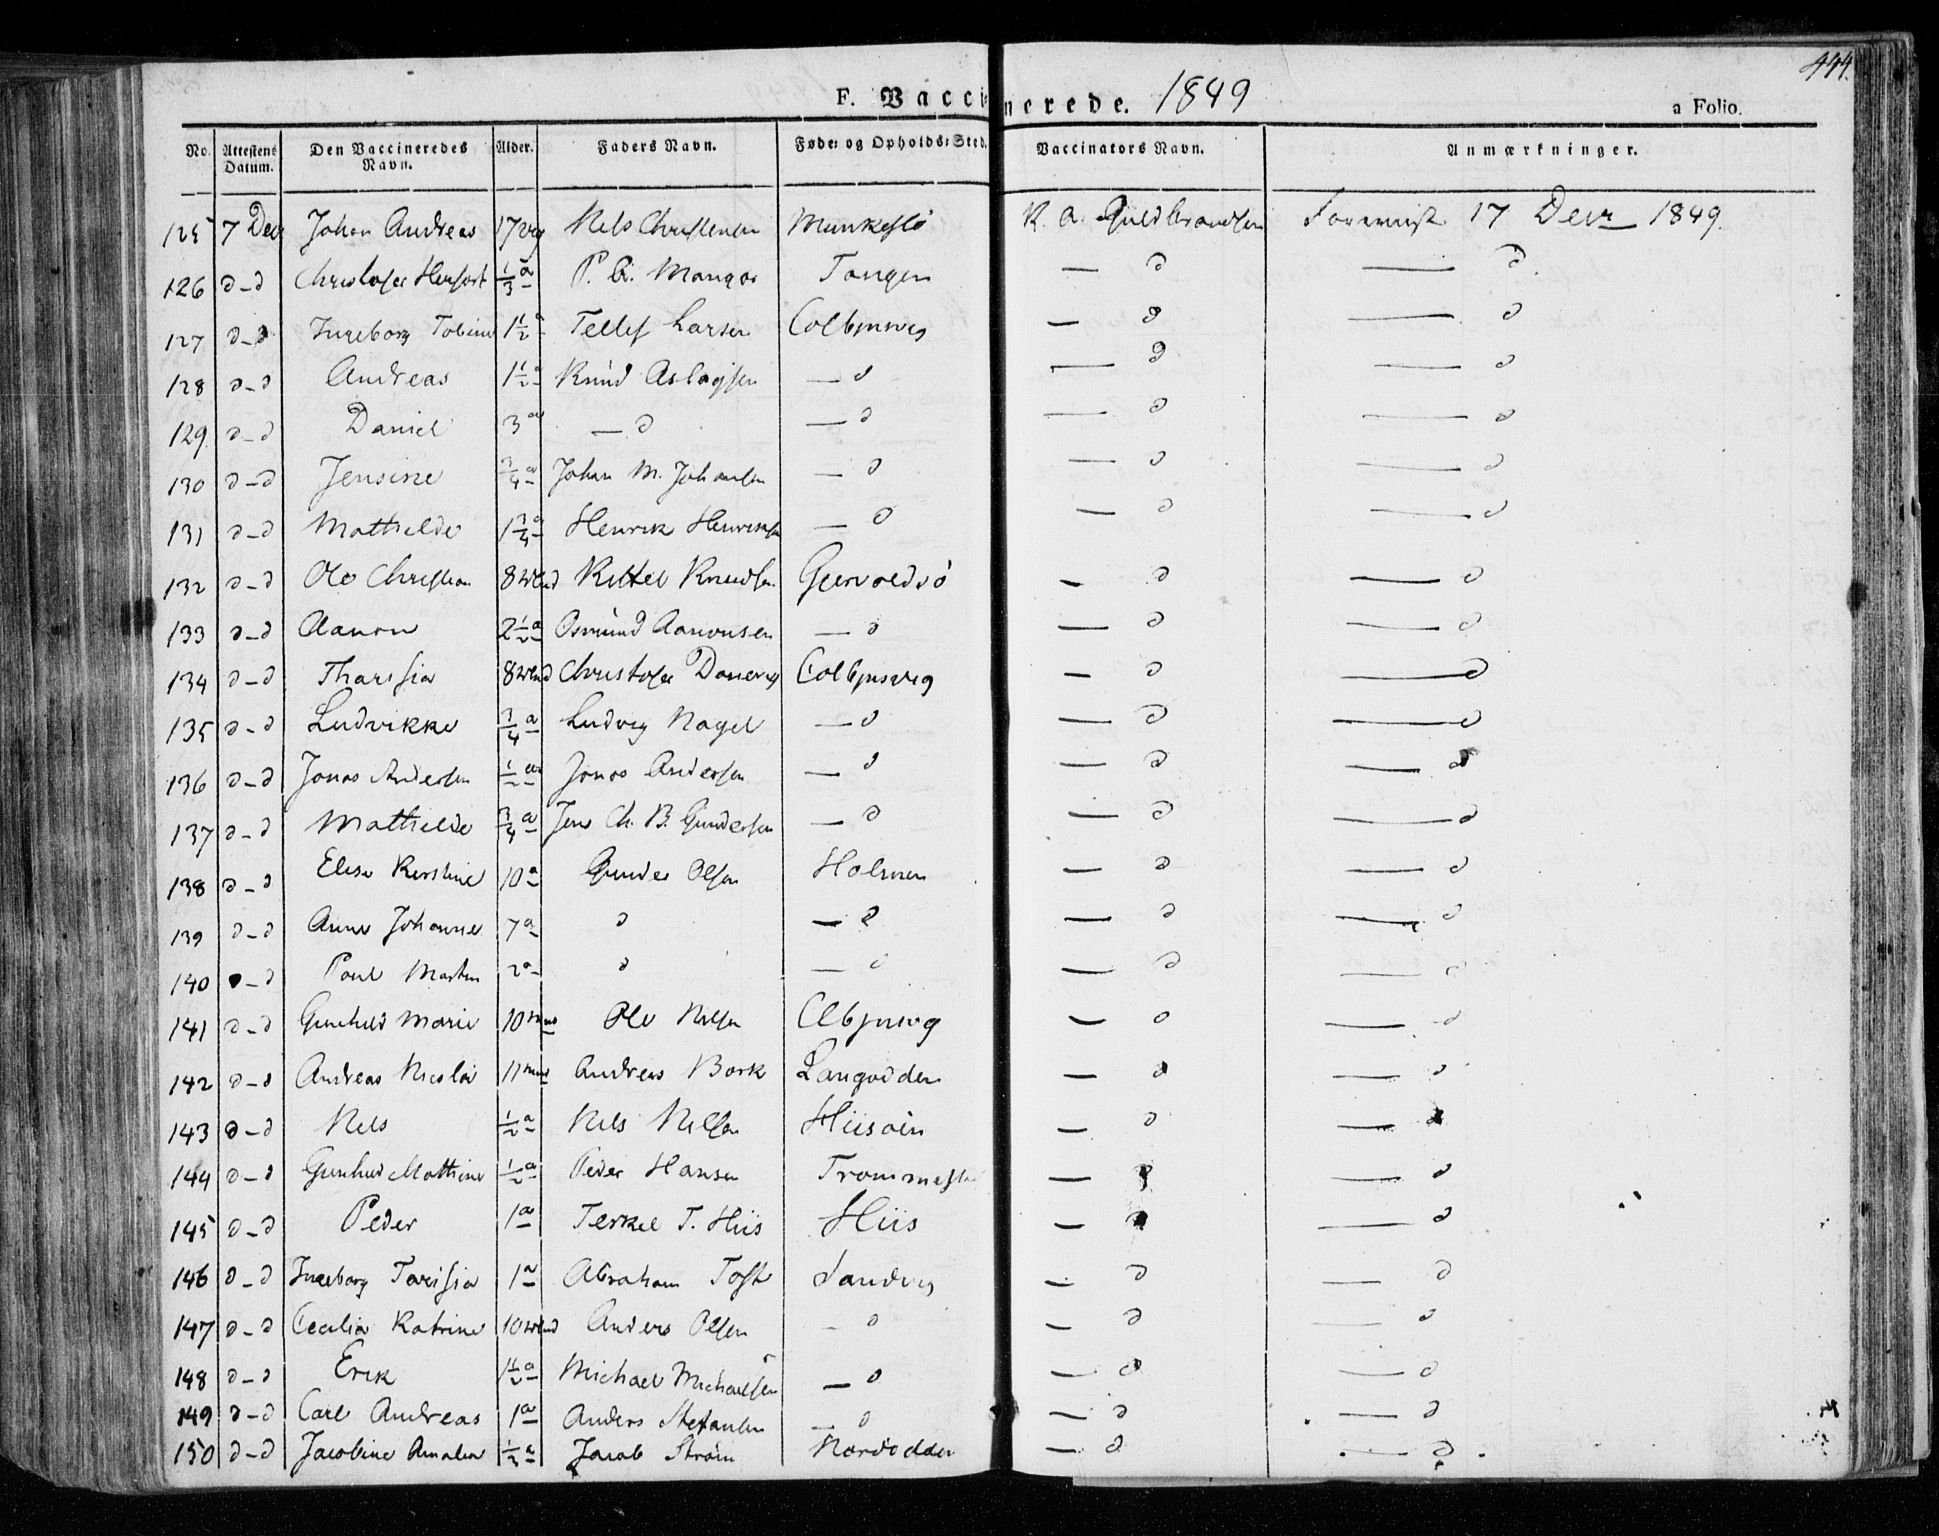 444.
F. Vaccinerede. 1849
a Folio.
No. Attestens Datum. Den Vaccineredes Navn. Alder. Faders Navn. Føde- og Opholds-Sted. Vaccinators Navn. Anmærkninger.
125 7 Dec Johan Andreas 17 Nels Christensen Munkeslö K. A. Guldbrandsen 17 Decr 1849.
126 d - d Christofer Herfort 1/3 a P. Mangor Tangen — d — d
127 d - d Ingeborg Tobine 1 1/2 a Tellef Larsen Colbjnsvig — d — d
128 d - d Andreas 1 1/2 a Knud Aslagsen — d — d — d
129. d - d Daniel 3 a — d — d — d — d
130 d - d Jensine 3/4 a Johan M. Johansen — d — d — d
131 d - d Mathilde 1 3/4 a Henrik Henriksen — d — d — d
132 d - d Ole Christian 8 Kittel Knudsen Gjervoldsö — d — d
133 d - d Aanon 2 1/2 a Osmund Aanonsen — d — d — d
134 d - d Tharisia 8 Christofer Danevig Colbjnsvig — d — d
135 d - d Ludvikke 3/4 a Ludvig Nagel — d — d — d
136 d - d Jonas Andersen 1/2 a Jonas Andersen — d — d — d
137 d - d Mathilde 3/4 a Jens Ch. B. Gundersen — d — d — d
138 d - d Elise Kirstine 10 a Gunder Olsen Holmen — d — d
139 d - d Anne Johanne 7 a d — d — d — d
140 d - d Poul Martin 2 a d — d — d — d
141 d - d Gunhild Marie 10 Ole Nilsen Clbjnsvg — d — d
142 d - d Andreas Nicolai 11 Andreas Bork Langodden — d — d
143 d - d Nels 1/2 a Nels Nelsen Hiisöin — d — d
144 d - d Gunhild Mathine 1/2 a Peder Hansen — d — d
145 d - d Peder 1 a Terkel T. Hiis Hiis — d — d
146 d - d Ingeborg Tarisia 1 a Abraham Toft Sandvig — d — d
147 d - d Cecilia Katrine 10 Anders Olsen — d — d — d
148 d - d Erik 1 1/2 a Michael Michaelsen — d — d — d
149 d - d Carl Andreas 1 a Anders Stefansen — d — d — d
150 d - d Jacobine Amalia 1/2 a Jacob Ström Nordodden — d — d